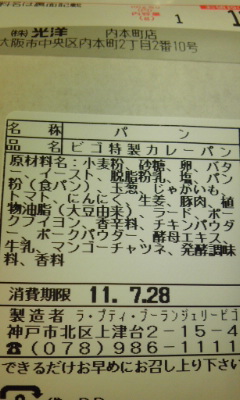 1
㈱光洋 内本町店
大阪市中央区内本町2丁目2番10号
名称 パン
品名 ビゴ特製カレーパン
原材料名：小麦粉、砂糖、卵、バタ
ー、イースト、脱脂粉乳、塩、パン
粉（食パン）、玉葱、じゃがいも、
トマト、にんにく、生姜、豚肉、植
物油脂（大豆由来）、ラード、ポー
クブイヨン、香辛料、チキンパウダ
ー、ポークパウダー、酵母エキス、
牛乳、マンゴーチャツネ、発酵調味
料、香料
消費期限 11. 7.28
製造者 ラ・プティ・ブーランジェリービゴ
神戸市北区上津台2-15-
☎(078)986-1111
できるだけお早めにお召し上り下さい